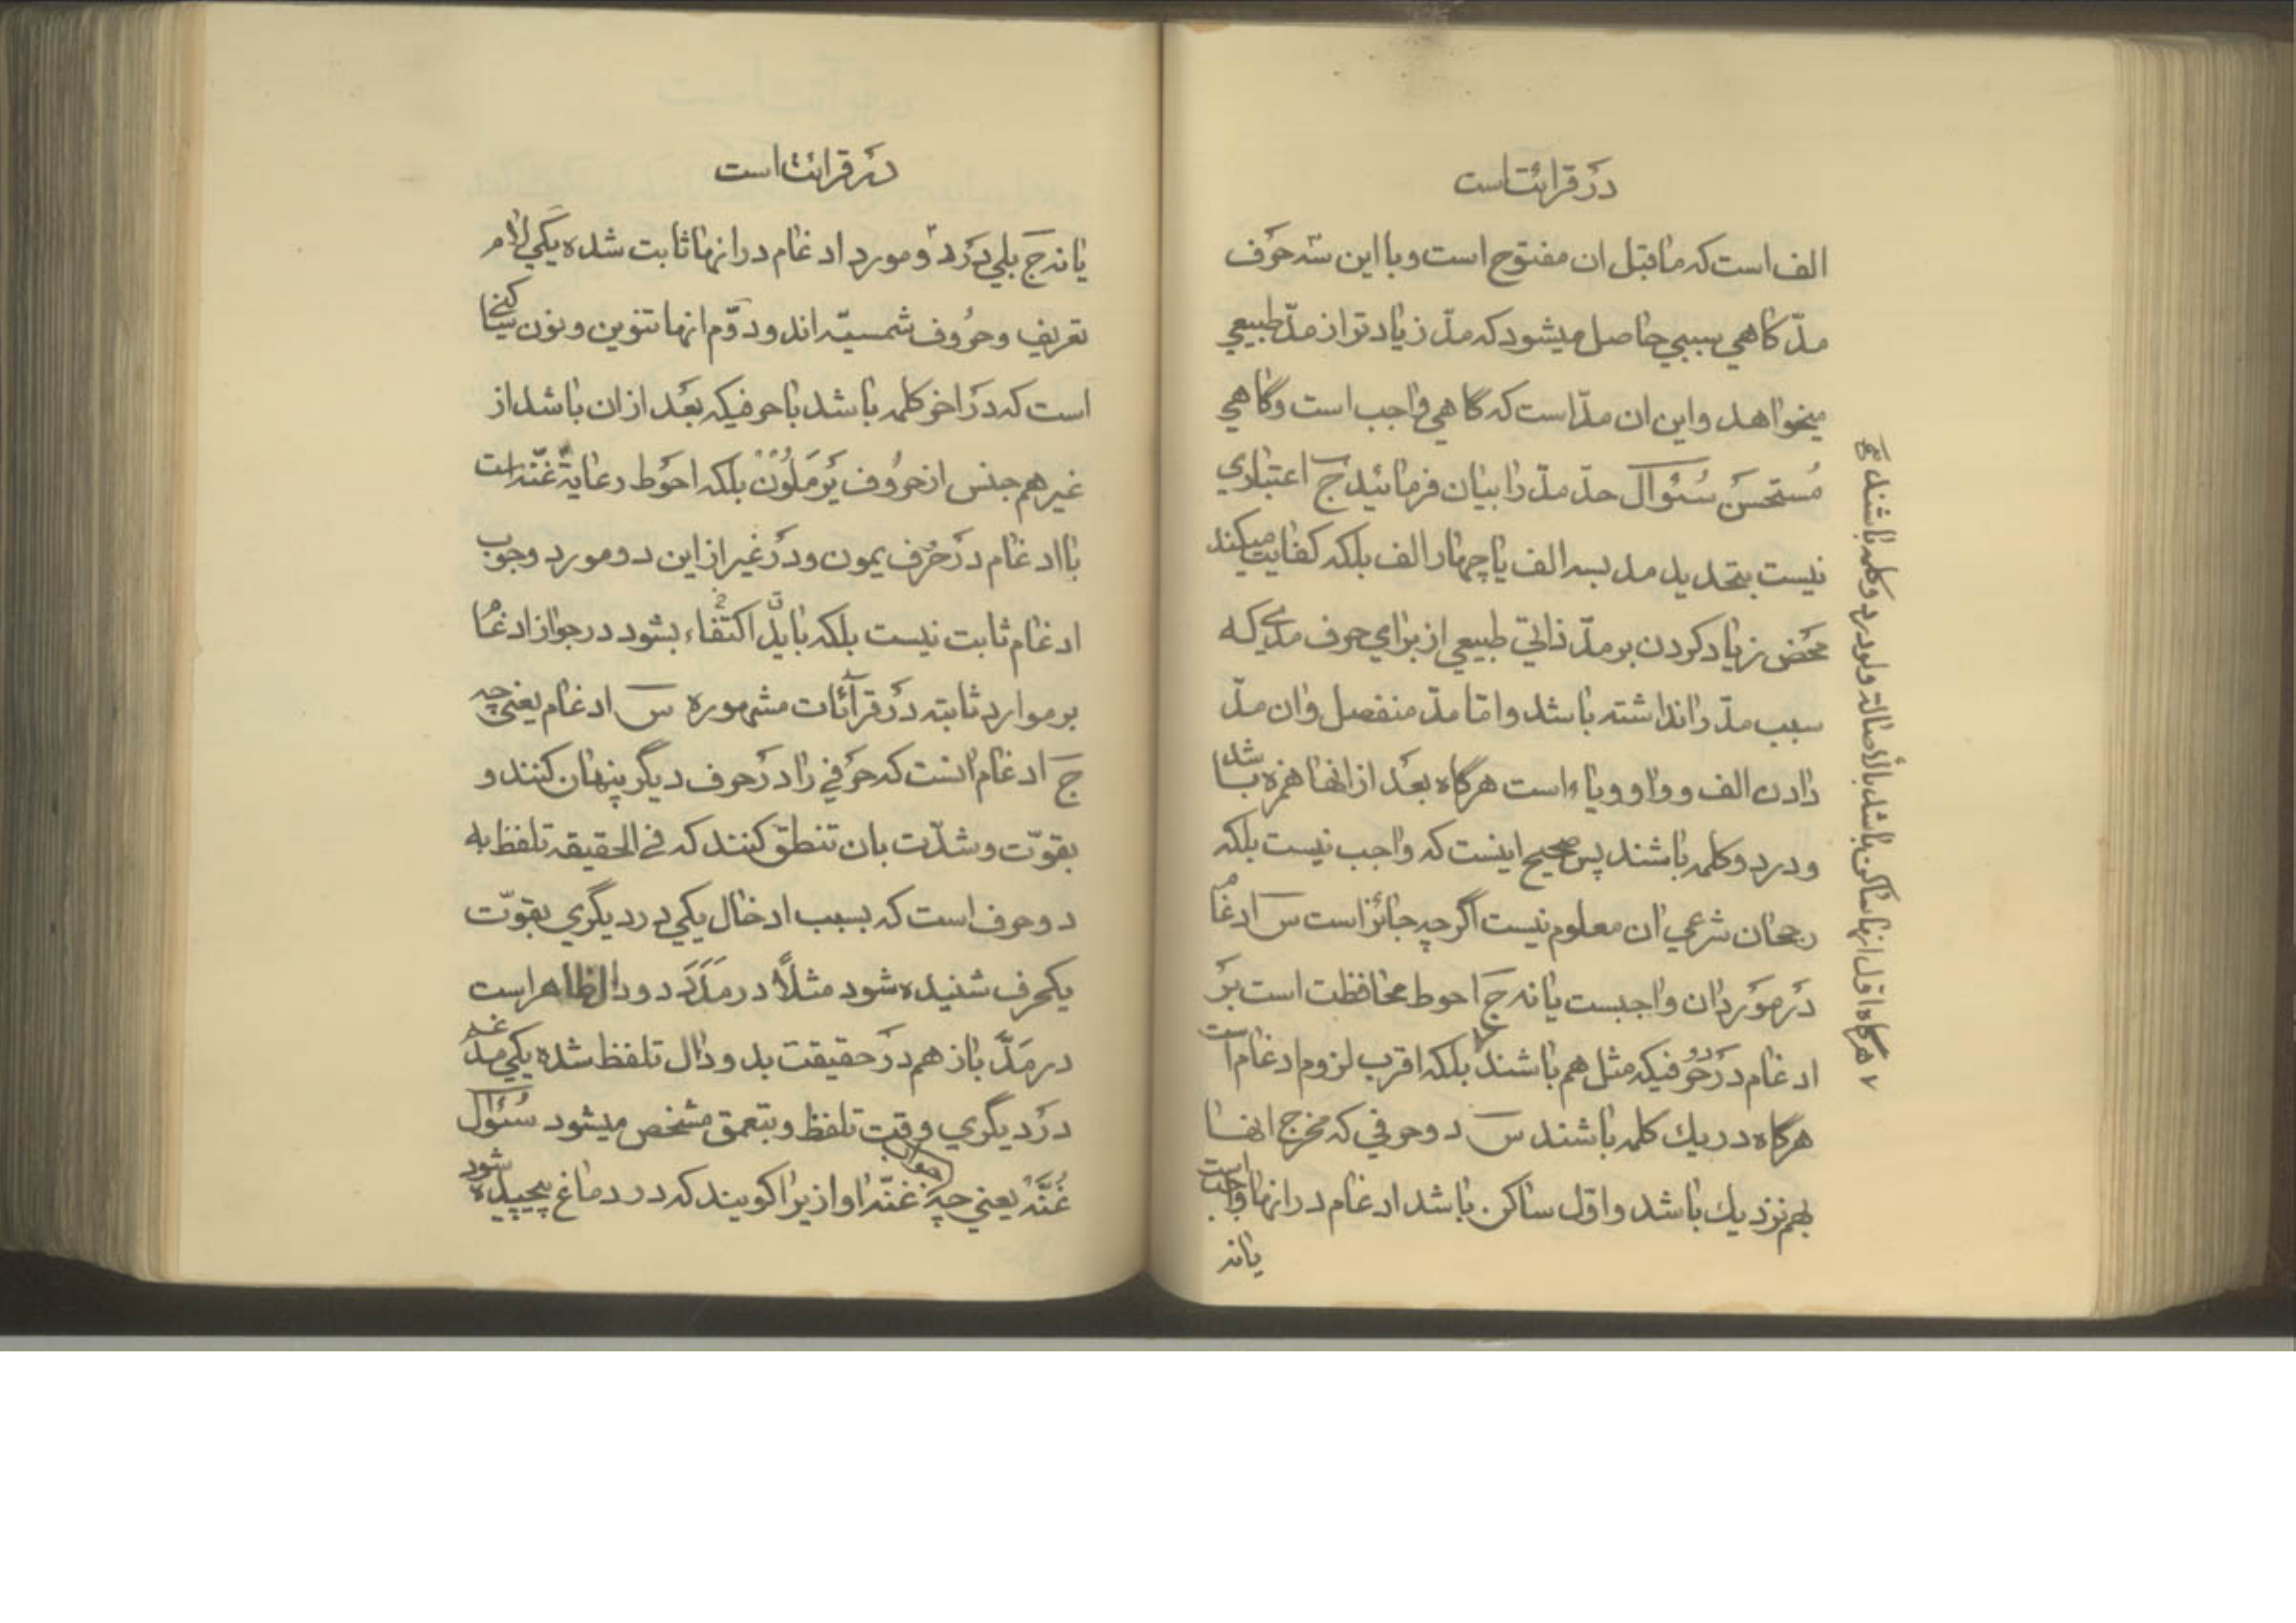 در قرائت است
الف است که ماقبل ان مفتوح است و با این سه حرف
مدّ کاهی بسببی حاصل میشود که مدّ زیادتر از مدّ طبیعی
میخواهد و این ان مدّ است که گاهی واجب است و گاهی
مُستحسنَ سُئوال حدّ مدّ را بیان فرمائید ج اعتباری
نیست بتحدید مد بسه الف یا چهار الف بلکه کفایت میکند
محَض زیاد کردن بر مدّ ذاتی طبیعی از برای حرف مدّی که
سبب مدّ را نداشته باشد و امّا مدّ منفصل و ان مدّ
دادن الف و واو و یاء است هرگاه بعَد از انها همزه باشد
و در دو کلمه باشند پس صحیح اینست که واجب نیست بلکه
رجحان شرعی ان معلوم نیست اگر چه جائز است س ادغام
دَر موَرد ان واجبست یا نه ج احوط محافظت است برَ
ادغام در حَرفیکه مثل هم باشند بلکه اقرب لزوم ادغام است
هرگاه در یك کلمه باشند س دو حرفی که مخرج انها
بهم نزدیك باشد و اوّل ساکن باشد ادغام در انها واجب است
یا نه
هرگاه اوّل انها ساکن باشد بالأصالة ولو در دو کلمه باشند صح
در قرائت است
یا نه ج بلی دَر دو مورد ادغام در انها ثابت شده یکی لام
تعریف و حُروف شمسیّه اند و دوّم انها تنوین و نون ساکنی
است که در اخر کلمه باشد با حرفیکه بعَد از ان باشد از
غیر هم جنس از حُروف یَرمَلُونْ بلکه احوَط رعایة غنّه است
با ادغام در حَرف یمون و در غیر از این دو مورد وجوب
ادغام ثابت نیست بلکه باید اکتفاء بشود در جواز ادغام
بر موارد ثابته دَر قرآئات مشهوره س ادغام یعنی چه
ج ادغام انست که حرَفی را در حَرف دیگر پنهان کنند و
بقوّت و شدّت بان تنطق کنند که فی الحقیقه تلفظ به
دو حرف است که بسبب ادخال یکی در دیگری بقوّت
یکحرف شنیده شود مثلاً در مَدَدَ دو دال ظاهر است
در مَدَّ باز هم دَر حقیقت بدو دال تلفظ شده یکی مدغم
دَر دیگری وقت تلفظ و بتعمق مشخص میشود سُئوال
غُنَّه یعنی چه جواب غنّه اوازیرا کویند که در دماغ پیچیده شود